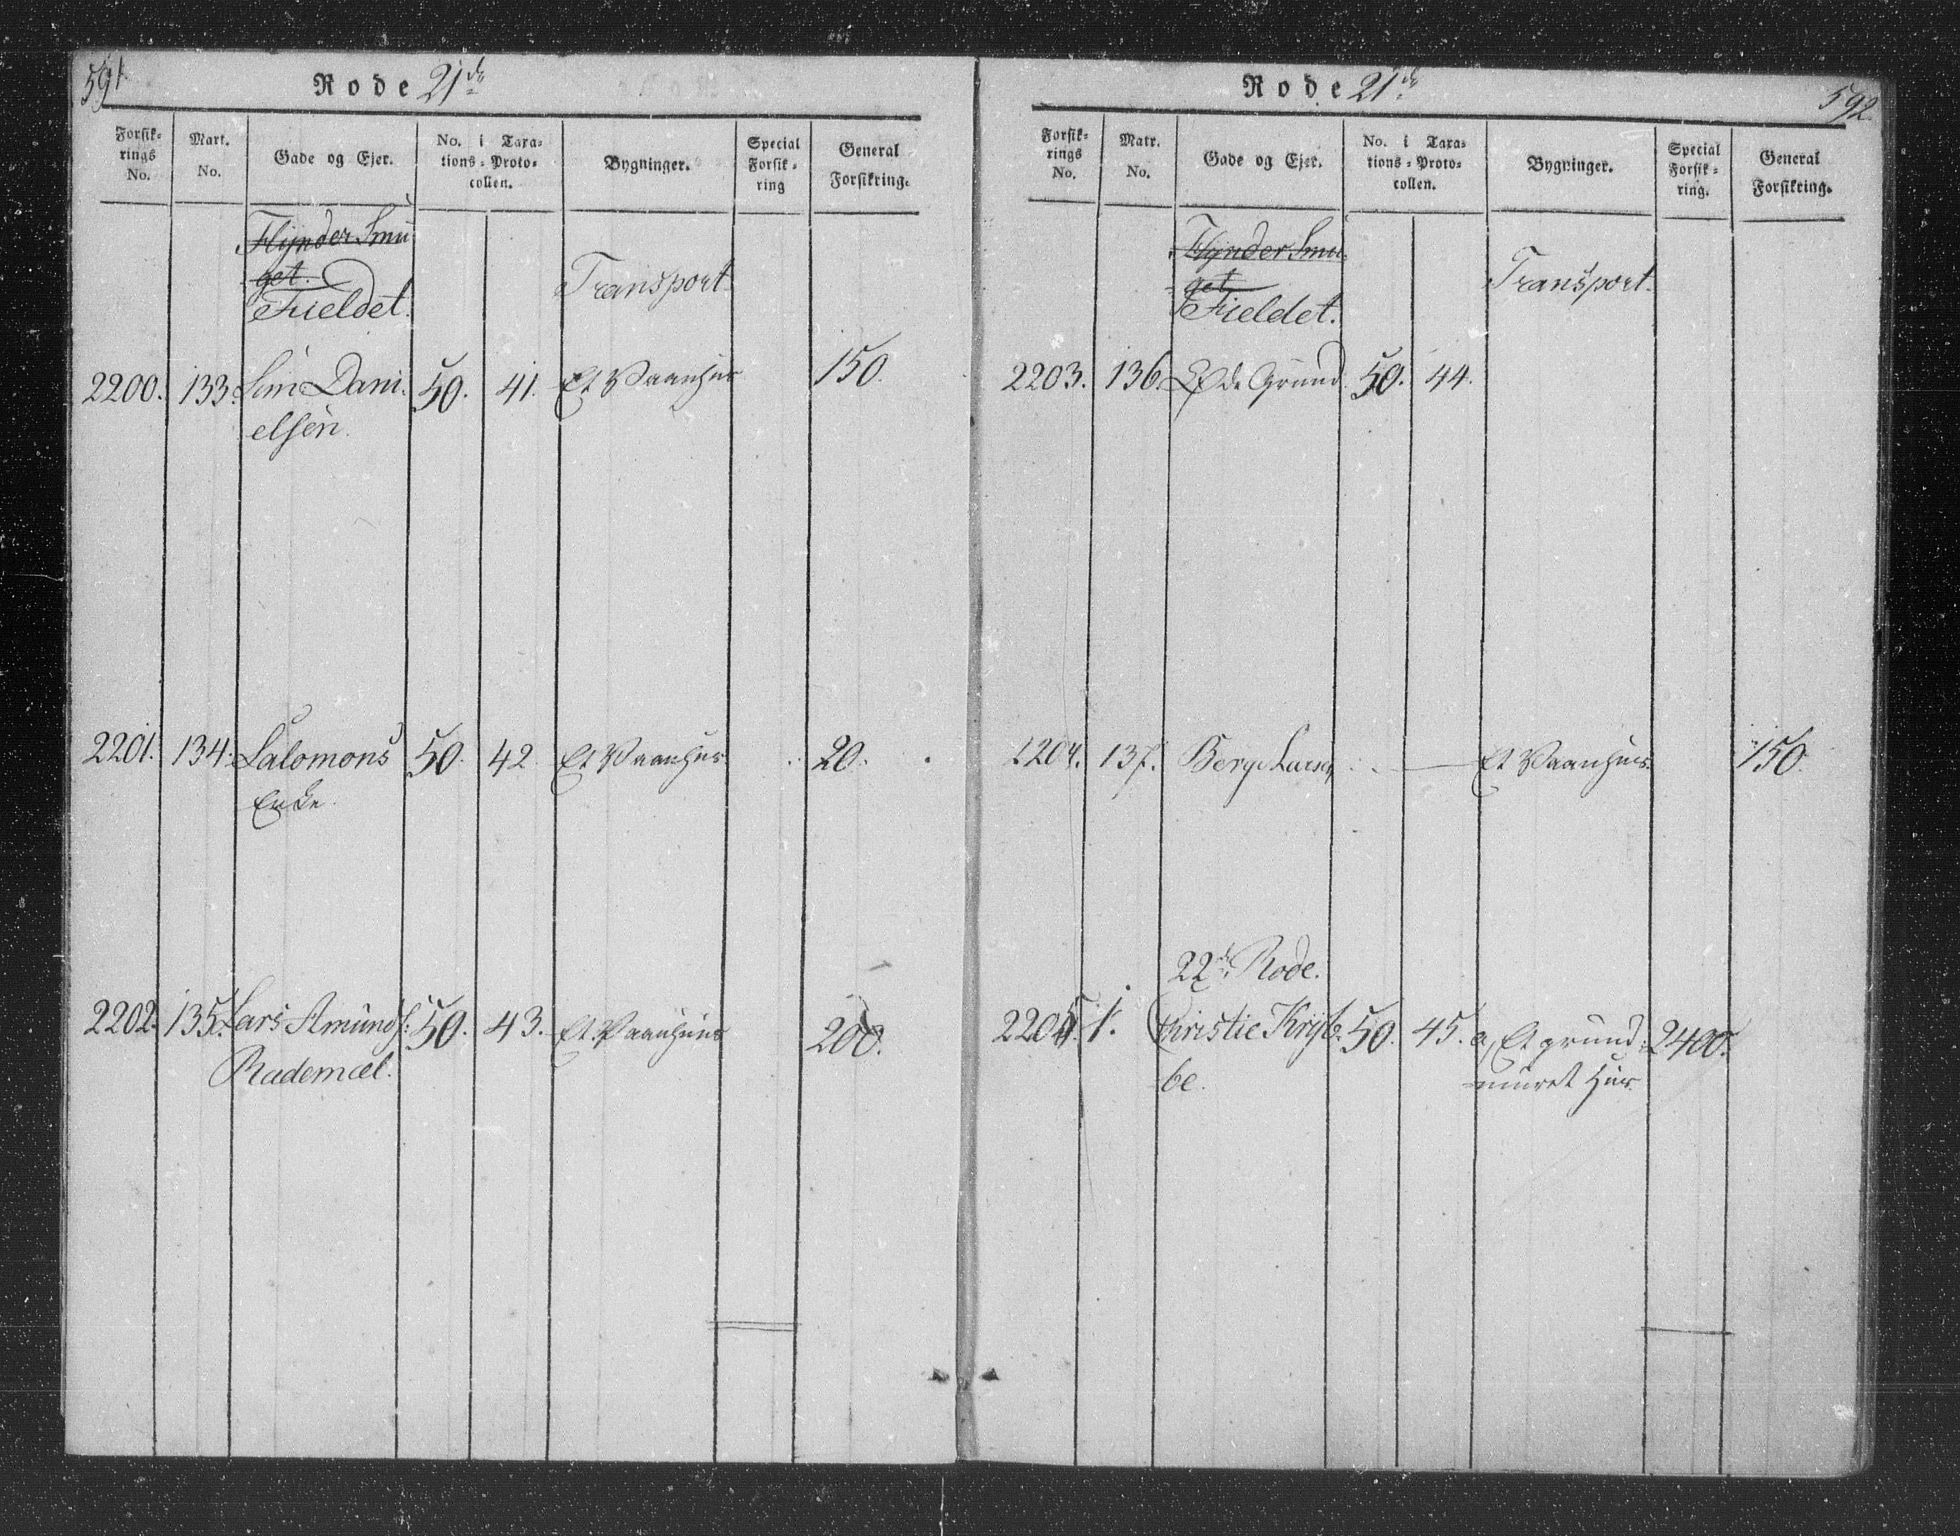 591
Rode 21de
Forsik-
rings
No.
Mart.
No.
Gade og Ejer.
No. i Taxa-
tions-Proto-
collen.
Bygninger.
Special
Forsik-
ring
General
Forsikring.
Flynder Smu
get.
Fieldet.
Transport.
2200. 133. Dani-
elsen.
50. 41. Et Vaanhus 150.
2201. 134. Salomons
Enke.
50. 42. Et Vaanhus 20.
2202. 135. Lars Amunds:
Rademæl.
50. 43. Et Vaanhuus 200.
592.
Rode 21de
Forsik-
rings
No.
Matr.
No.
Gade og Ejer.
No. i Taxa-
tions-Proto-
collen.
Bygninger.
Special
Forsik-
ring.
General
Forsikring.
Flynder Smu
get
Fieldet.
Transport.
2203. 136. Øde Grund. 50. 44.
2204. 137. Berge Larsen Et Vaanhuus. 150.
22de Rode.
2205. 1. Christie Kryb-
be.
50. 45. a, Et grund-
muret Huus 2400.